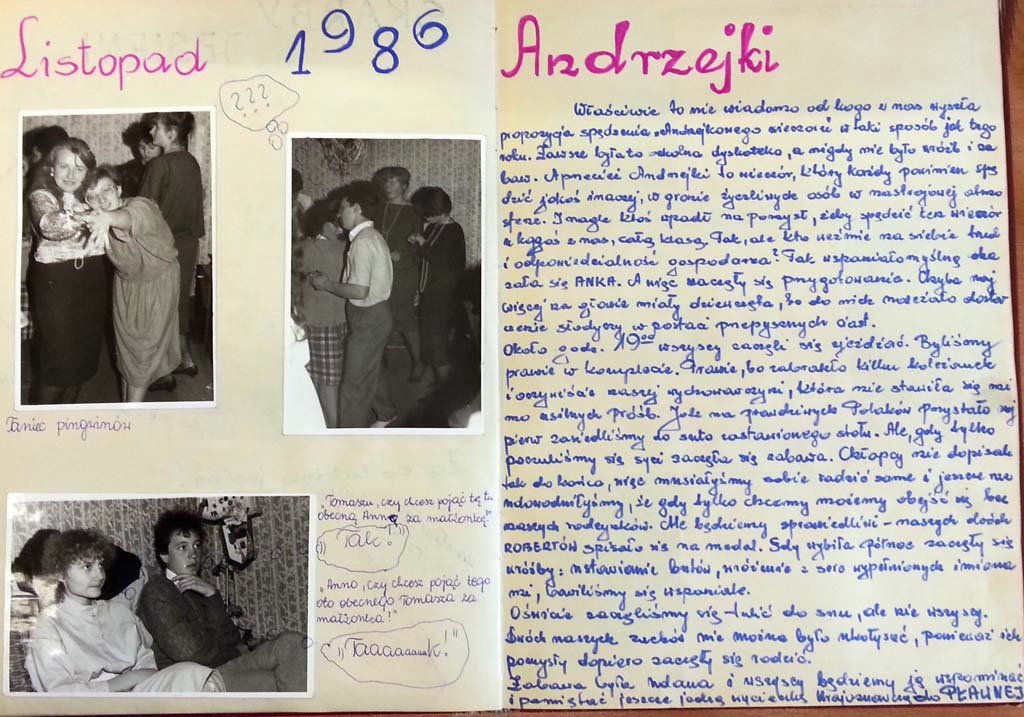 Listopad 1986
???
Taniec pingwinów
"Tomaszu, czy chcesz pojąć tę tu
obecną Annę za małżonkę?"
"Tak!"
"Anno, czy chcesz pojąć tego
oto obecnego Tomasza za
małżonka!"
"Taaaaaaak!"
Andrzejki
Właściwie to nie wiadomo od kogo z nas wyszła
propozycja spędzenia "Andrzejkowego wieczoru" w taki sposób jak tego
roku. Zawsze była to szkolna dyskoteka, a nigdy nie było wróżb i za
baw. A przecież Andrzejki to wieczór, który każdy powinien spę
dzić jakoś inaczej, w gronie życzliwych osób w nastrojowej atmo
sferze. I nagle ktoś wpadł na pomysł, żeby spędzić ten wieczór
u kogoś z nas, całą klasą. Tak, ale kto weźmie na siebie trud
i odpowiedzialność gospodarza? Tak wspaniałomyślną oka
zała się ANKA. A więc zaczęły się przygotowania. Chyba naj
więcej na głowie miały dziewczęta, bo do nich należało dostar
czenie słodyczy w postaci przepysznych ciast.
Około godz. 19⁰⁰ wszyscy zaczęli się zjeżdżać. Byliśmy
prawie w komplecie. Prawie, bo zabrakło kilku koleżanek
i oczywiście naszej wychowawczyni, która nie stawiła się mi
mo usilnych próśb. Jak na prawdziwych Polaków przystało naj
pierw zasiedliśmy do suto zastawionego stołu. Ale, gdy tylko
poczuliśmy się syci zaczęła się zabawa. Chłopcy nie dopisali
tak do końca, więc musiałyśmy sobie radzić same i jeszcze raz
udowodniłyśmy, że gdy tylko chcemy możemy obejść się bez
naszych rodzynków. Ale będziemy sprawiedliwi - naszych dwóch
ROBERTÓW spisało się na medal. Gdy wybiła północ zaczęły się
wróżby: ustawianie butów, wróżenie z serc wypełnionych imiona
mi, bawiliśmy się wspaniale.
O świcie zaczęliśmy się tulić do snu, ale nie wszyscy.
Dwóch naszych zuchów nie można było ukołysać, ponieważ ich
pomysły dopiero zaczęły się rodzić.
Zabawa była udana i wszyscy będziemy ją wspominać
i pamiętać jeszcze jedną wycieczkę do PŁAWNEJ